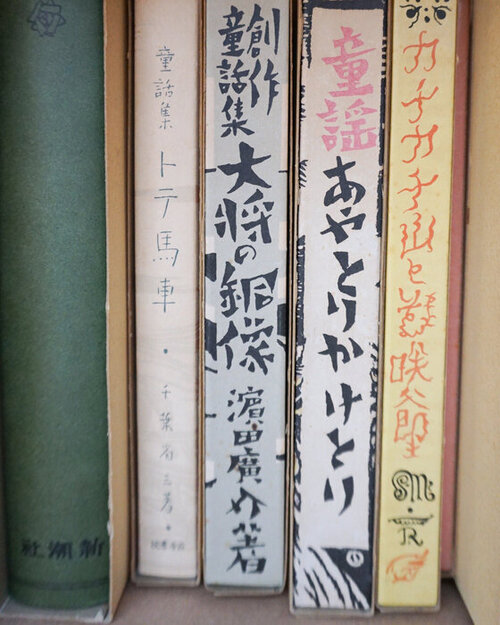 新潮社
童話集
トテ馬車・
千葉省三著・
創作
童話集
大将の銅像
濱田廣介著
童謡
あやとりかけとり
カチカチ山と花咲爺
SM
R